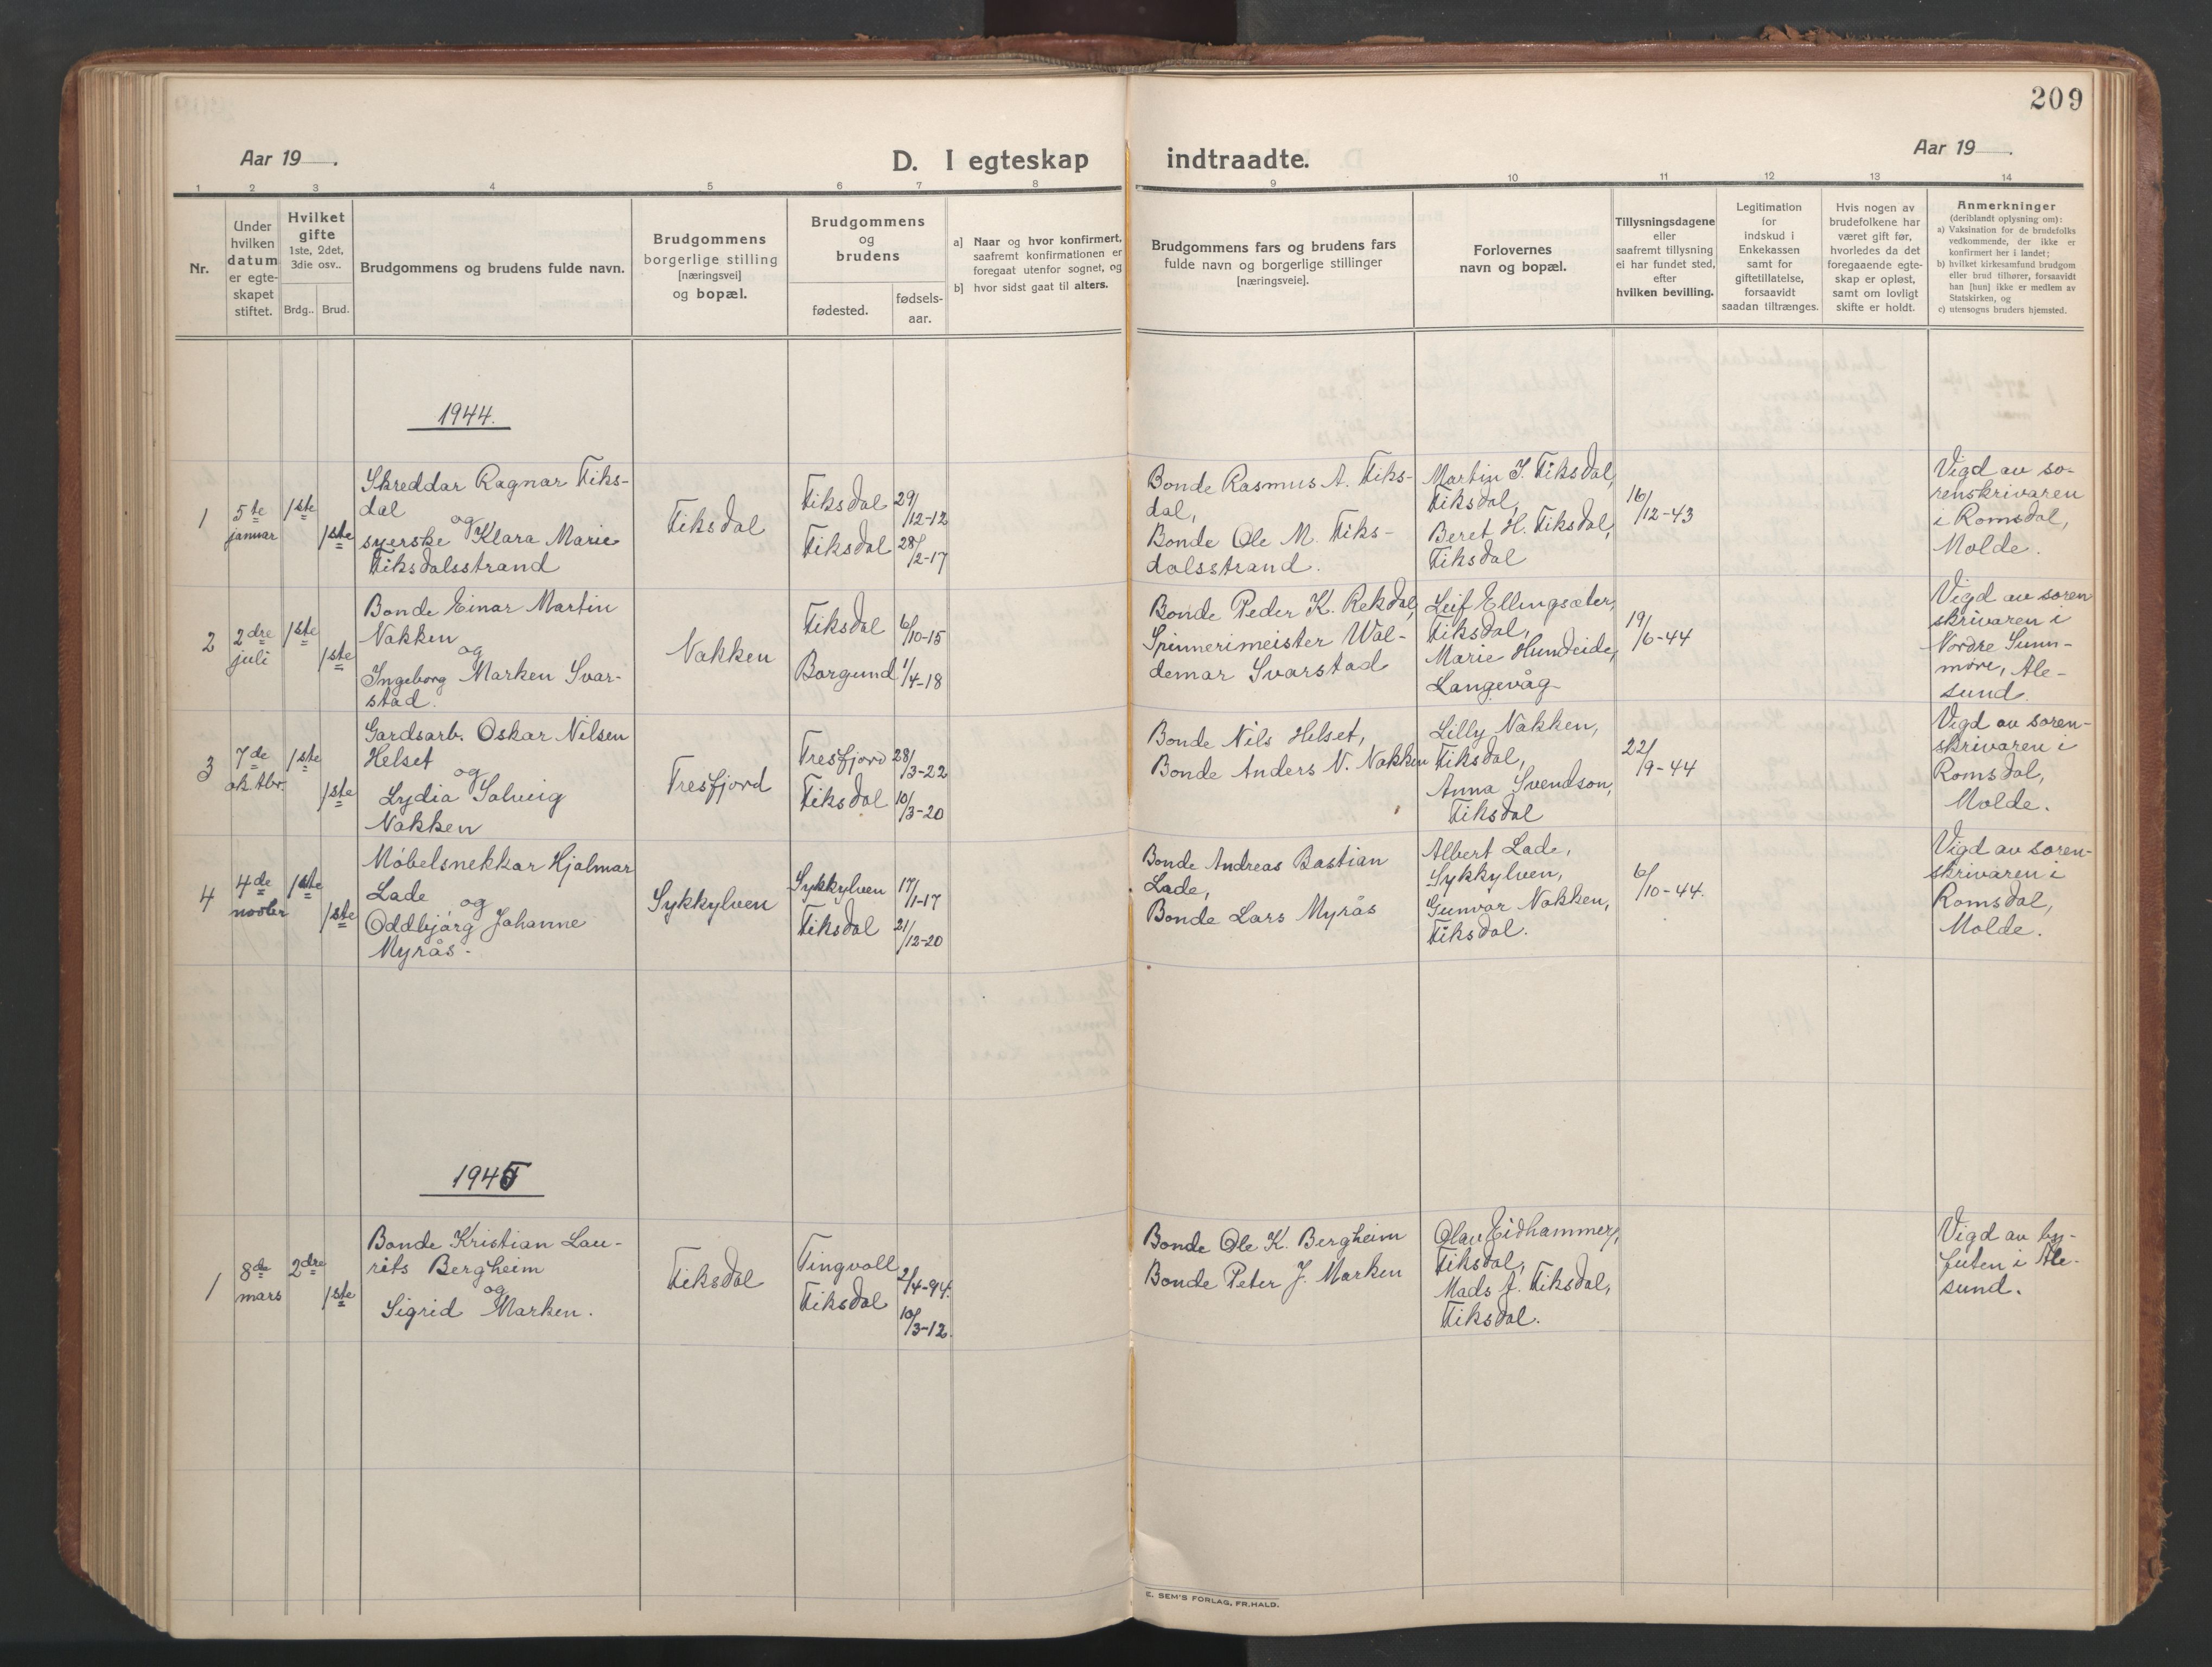 209
Aar 19 .
D. I egteskap
indtraadte.
Aar 19 .
1 2 3 4 5 6 7 8 9 10 11 12 13 14
Nr.
Under
hvilken
datum
er egte-
skapet
stiftet.
Hvilket
gifte
1ste, 2det,
3die osv..
Brdg.. Brud.
Brudgommens og brudens fulde navn.
Brudgommens
borgerlige stilling
[næringsvei]
og bopæl.
Brudgommens
og
brudens
fødested.
fødsels-
aar.
a] Naar og hvor konfirmert,
saafremt konfirmationen er
foregaat utenfor sognet, og
b] hvor sidst gaat til alters.
Brudgommens fars og brudens fars
fulde navn og borgerlige stillinger
[næringsveie].
Forlovernes
navn og bopæl.
Tillysningsdagene
eller
saafremt tillysning
ei har fundet sted,
efter
hvilken bevilling.
Legitimation
for
indskud i
Enkekassen
samt for
giftetillatelse,
forsaavidt
saadan tiltrænges.
Hvis nogen av
brudefolkene har
været gift før,
hvorledes da det
foregaaende egte-
skap er opløst,
samt om lovligt
skifte er holdt.
Anmerkninger
(deriblandt oplysning om):
a) Vaksination for de brudefolks
vedkommende, der ikke er
konfirmert her i landet;
b) hvilket kirkesamfund brudgom
eller brud tilhører, forsaavidt
han [hun] ikke er medlem av
Statskirken, og
c) utensogns bruders hjemsted.
1944.
1
5te
januar
1ste
1ste
Skreddar Ragnar Tiks-
dal
og
syerske Klara Marie
Tiksdalsstrand
Tiksdal
Tiksdal 29/12-12
Tiksdal 28/2-17
Bonde Rasmus A. Tiks-
dal,
Bonde Ole M. Tiks-
dalsstrand.
Martin J. Tiksdal,
Tiksdal,
Beret H. Tiksdal,
Tiksdal
16/12-43
Vigd av so-
renskrivaren
i Romsdal,
Molde.
2
2dre
juli
1ste
1ste
Bonde Einar Martin
Nakken
og
Ingeborg Marken Svar-
stad.
Nakken
Tiksdal 6/10-15
Borgund 1/4-18
Bonde Peder K. Rekdal,
Spinnerimeister Wal-
demar Svarstad
Leif Ellingsæter,
Tiksdal,
Marie Hundeide,
Langevåg
19/6-44
Vigd av soren
skrivaren i
Nordre Sunn-
møre, Ale-
sund.
3
7de
oktbr.
1ste
1ste
Gardsarb. Oskar Nilsen
Helset
og
Lydia Solveig
Nakken
Tresfjord
Tresfjord 28/3-22
Tiksdal 10/3-20
Bonde Nils Helset,
Bonde Anders N. Nakken
Lilly Nakken,
Tiksdal,
Anna Svendson,
Tiksdal
22/9-44
Vigd av soren-
skrivaren i
Romsdal,
Molde.
4
4de
novbr
1ste
1ste
Møbelsnekkar Hjalmar
Lade
og
Oddbjørg Johanne
Myrås.
Sykkylven
Sykkylven 17/1-17
Tiksdal 21/12-20
Bonde Andreas Bastian
Lade,
Bonde Lars Myrås
Albert Lade,
Sykkylven,
Gunvar Nakken,
Tiksdal.
6/10-44.
Vigd av soren-
skrivaren i
Romsdal,
Molde.
1945
1
8de
mars
2dre
1ste
Bonde Kristian Lau-
rits Bergheim
og
Sigrid Marken.
Tiksdal
Tingvoll 2/4-94.
Tiksdal 10/3-12.
Bonde Ole K. Bergheim
Bonde Peter J. Marken
Olav Eidhammer,
Tiksdal,
Mads J. Tiksdal,
Tiksdal.
Vigd av by-
futen i Ale-
sund.
E. SEM'S FORLAG, FR.HALD.